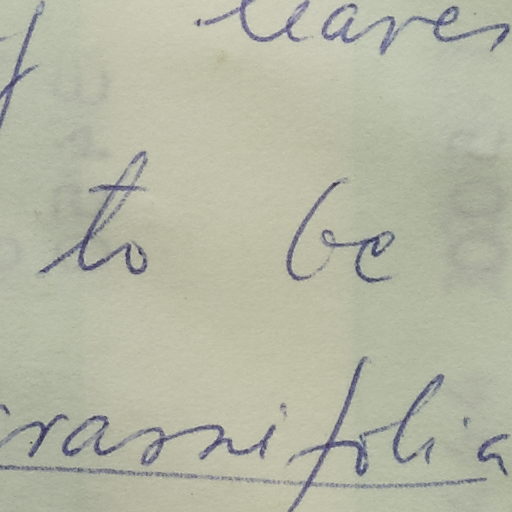 leaves
to be
crassifolia